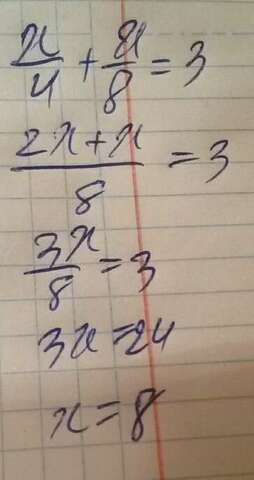 x/4 + x/8 = 3
(2x+x)/8 = 3
3x/8 = 3
3x=24
x=8